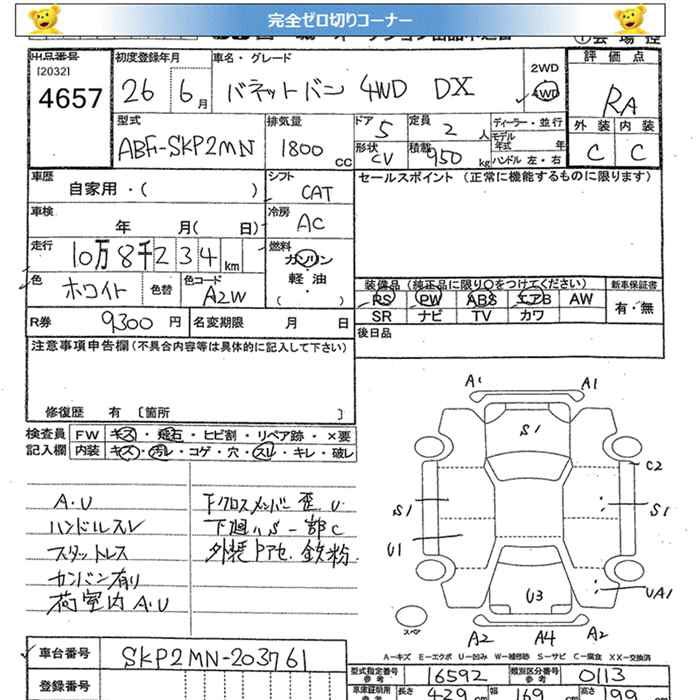 完全ゼロ切りコーナー
出品番号 初度登録年月 車名・グレード 評価点
[2032] 2WD
4657 26 6月 バネットバン 4WD DX 4WD RA
型式 排気量 ドア 5 定員 2人 ディーラー・並行 外装 内装
ABF-SKP2MN 1800cc モデル年式 年 C C
形状 CV 積載 950kg ハンドル 左・右
車歴 シフト セールスポイント (正常に機能するものに限ります)
自家用・( ) CAT
車検 冷房
年 月( 日) AC
走行 燃料
10万8千234km ガソリン
色 色替 色コード 軽・油 装備品(純正品に限り○をつけてください) 新車保証書
ホワイト A2W ( ・ ) PS PW ABS エアB AW 有・無
R券 9300円 名変期限 月 日 SR ナビ TV カワ
注意事項申告欄(不具合内容等は具体的に記入して下さい) 後日品
修復歴 有 [箇所 ]
検査員 FW キズ・飛石・ヒビ割・リペア跡・×要
記入欄 内装 キズ・汚レ・コゲ・穴・スレ・キレ・破レ
A・U 下クロスメンバー歪.U
ハンドルスレ 下廻りS一部C
スタットレス 外装ドアセ.鉄粉
カンバン有り
荷室内A.U
A1 A1
S1
C2
S1 S1
U1
U3 UA1
スペア A2 A4 A2
A―キズ E―エクボ U―凹み W―補修跡 S―サビ C―腐食 XX―交換済
車台番号 SKP2MN-203761
登録番号
型式指定番号 参考 16592 類別区分番号 参考 0113
車庫証明用 参考 長さ 429cm 幅 169cm 高さ 199cm